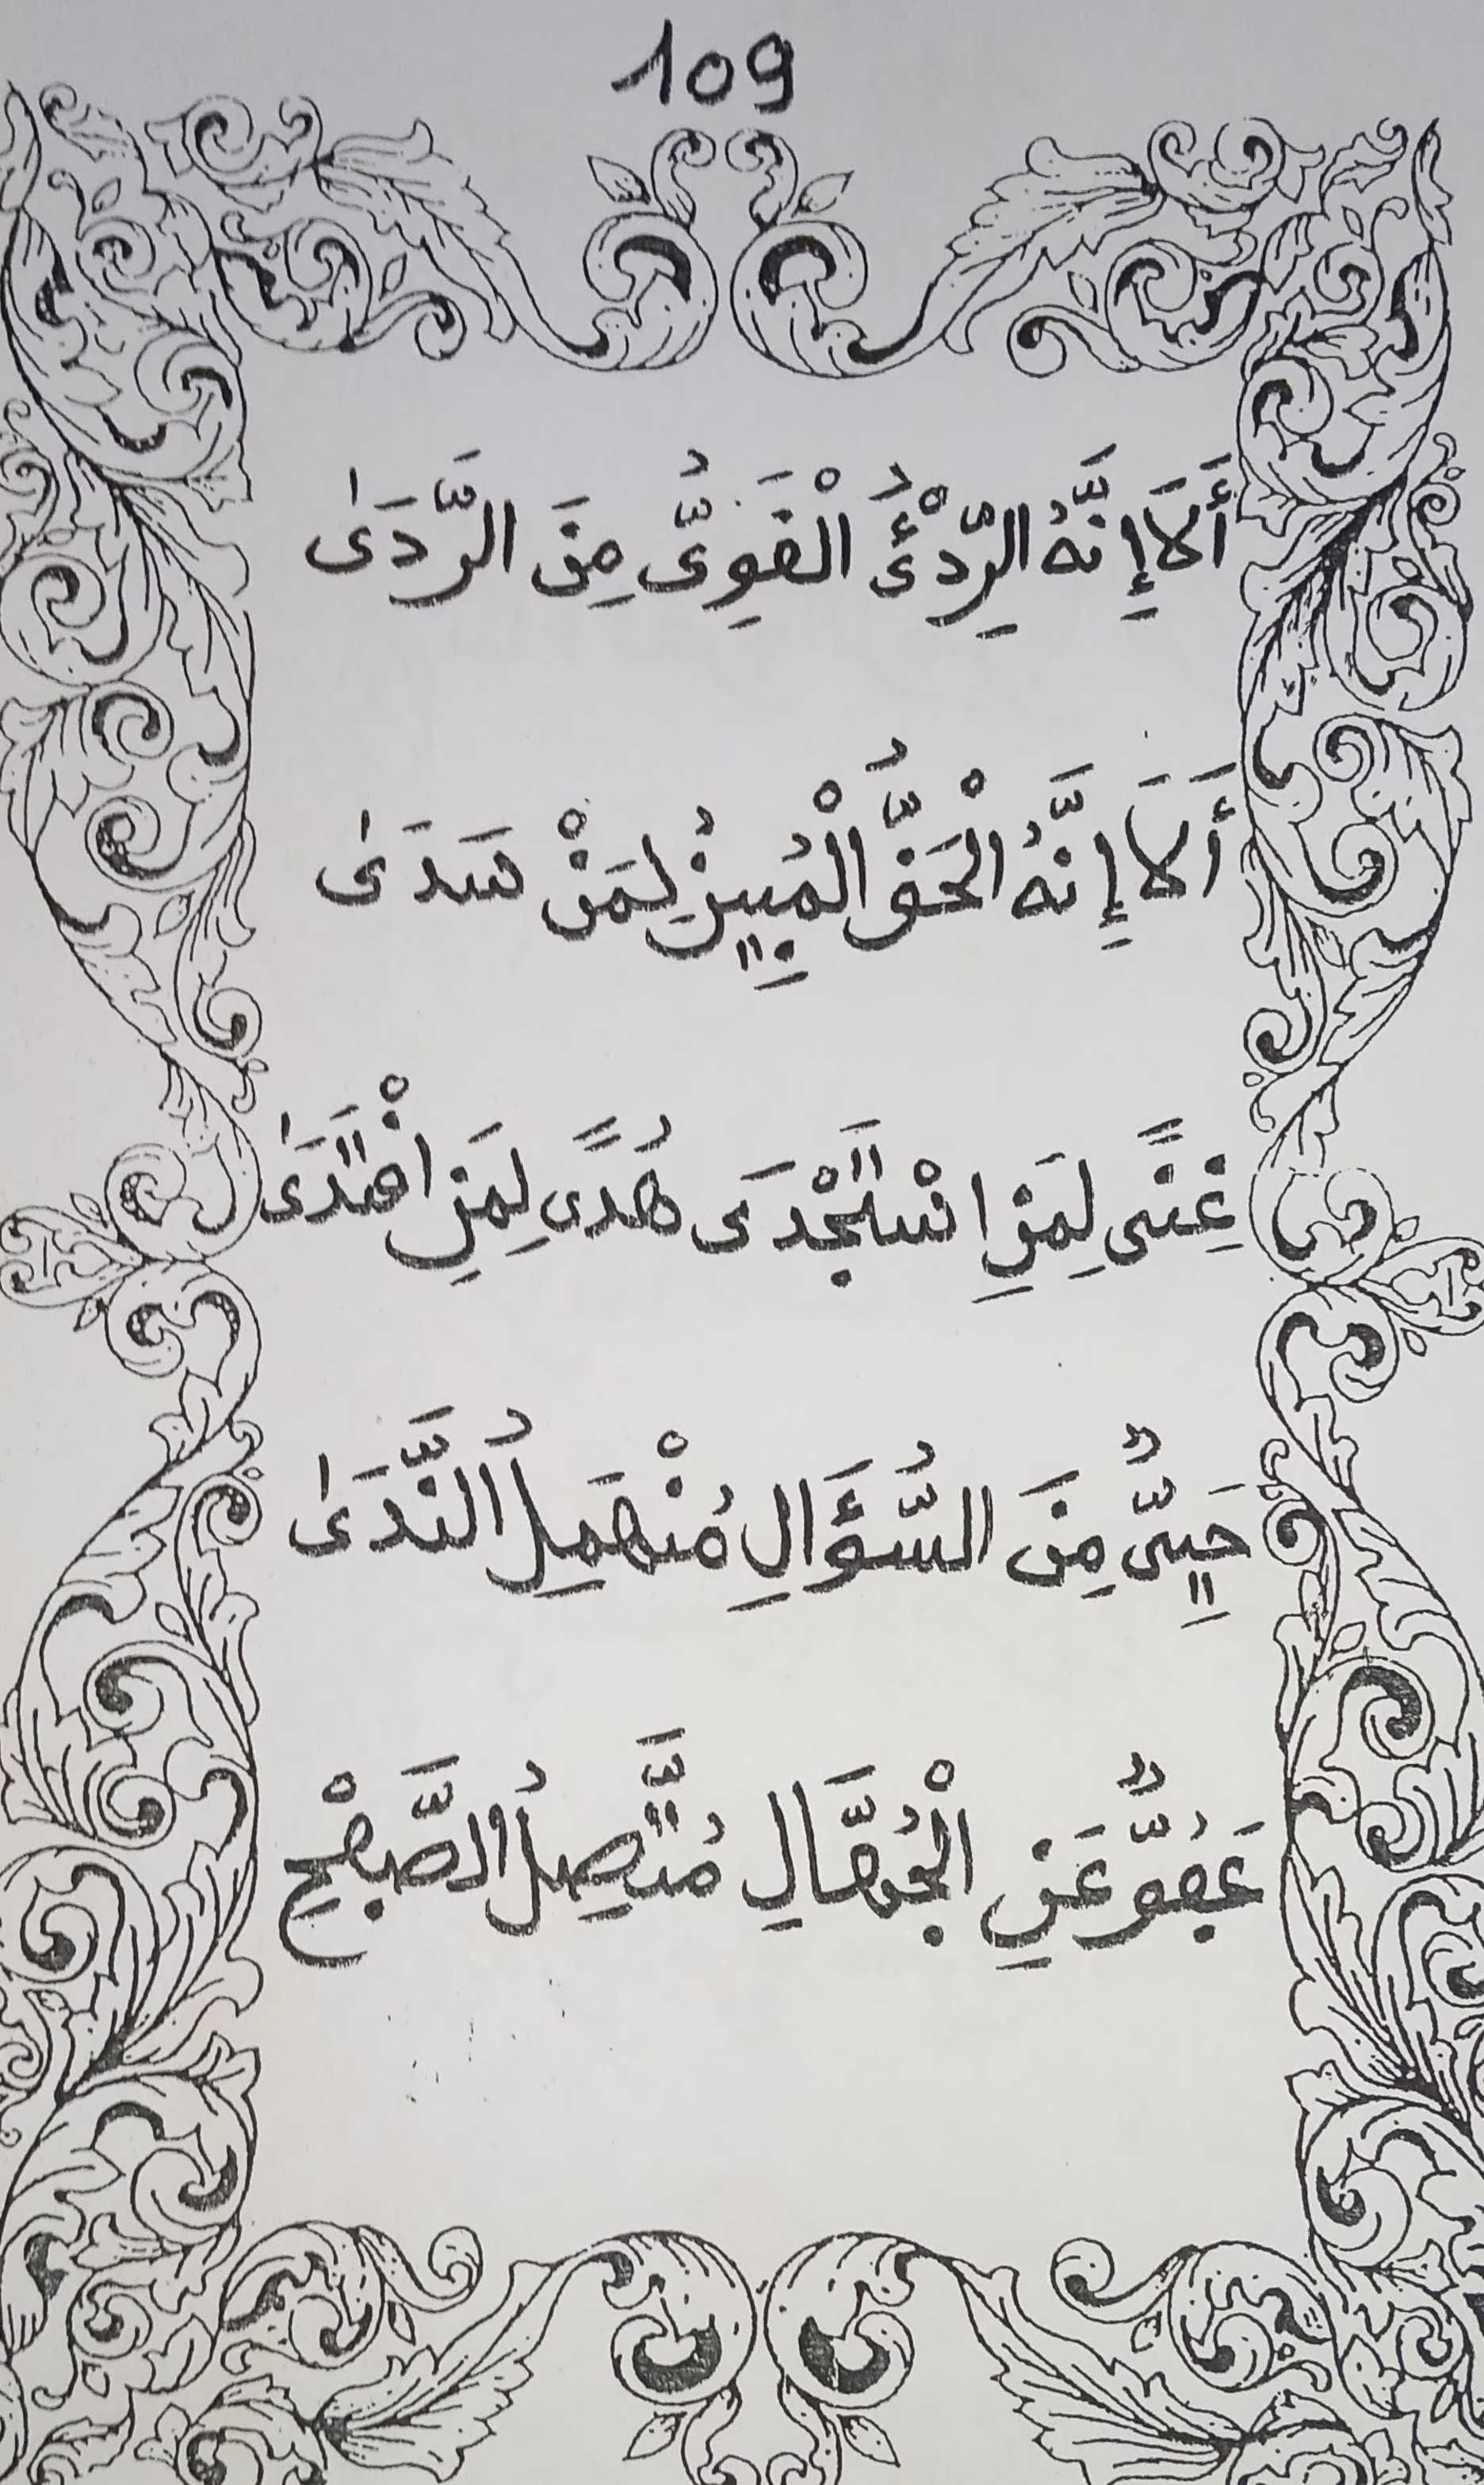 109
أَلَا إِنَّهُ الرِّدْءُ الْقَوِيُّ مِنَ الرَّدَىٰ
أَلَا إِنَّهُ الْحَقُّ الْمُبِينُ لِمَنْ هَدَىٰ
غِنًى لِمَنِ اسْتَجْدَى هُدًى لِمَنِ اهْتَدَىٰ
حَيِيٌّ مِنَ السُّؤَالِ مُنْهَمِلُ النَّدَىٰ
عَفُوٌّ عَنِ الْجُهَّالِ مُتَّصِلُ الصَّفْحِ